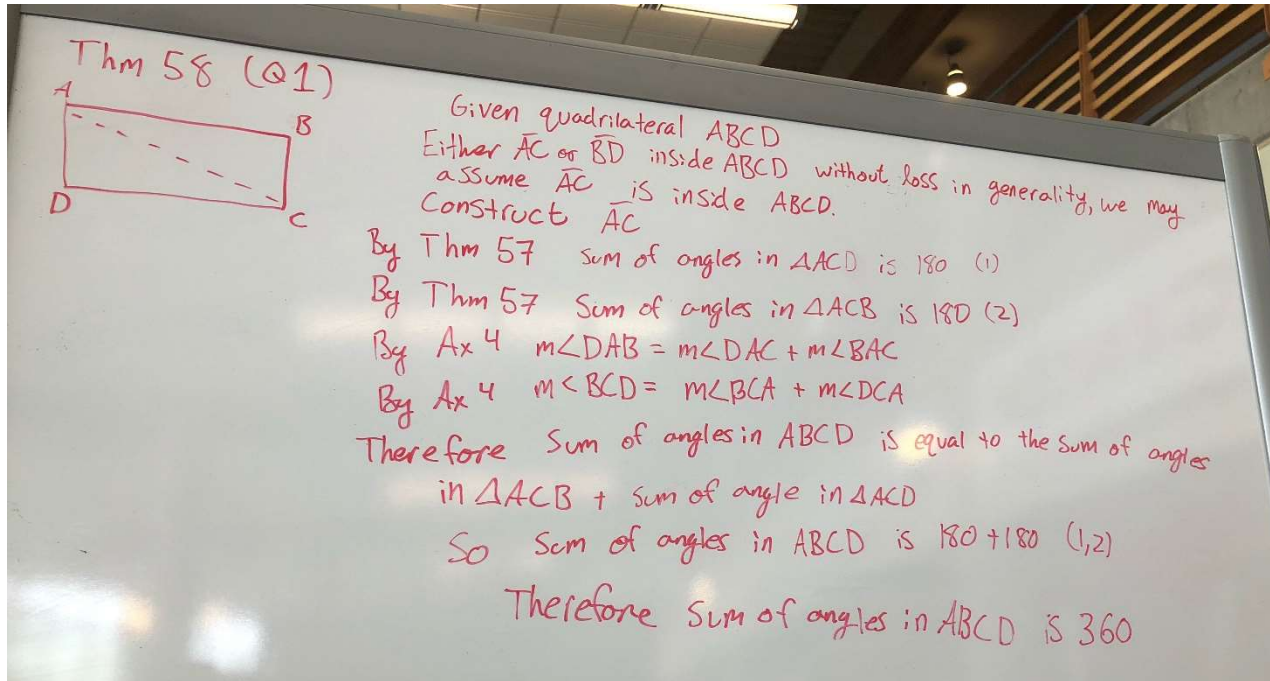 Thm 58 (Q1)
A
B
D
C
Given quadrilateral ABCD
Either A̅C̅ or B̅D̅ inside ABCD without loss in generality, we may
assume A̅C̅ is inside ABCD.
Construct A̅C̅
By Thm 57 sum of angles in △ACD is 180 (1)
By Thm 57 Sum of angles in △ACB is 180 (2)
By Ax 4 m∠DAB = m∠DAC + m∠BAC
By Ax 4 m<BCD = m∠BCA + m∠DCA
Therefore Sum of angles in ABCD is equal to the sum of angles
in △ACB + sum of angle in △ACD
So Sum of angles in ABCD is 180+180 (1,2)
Therefore Sum of angles in ABCD is 360